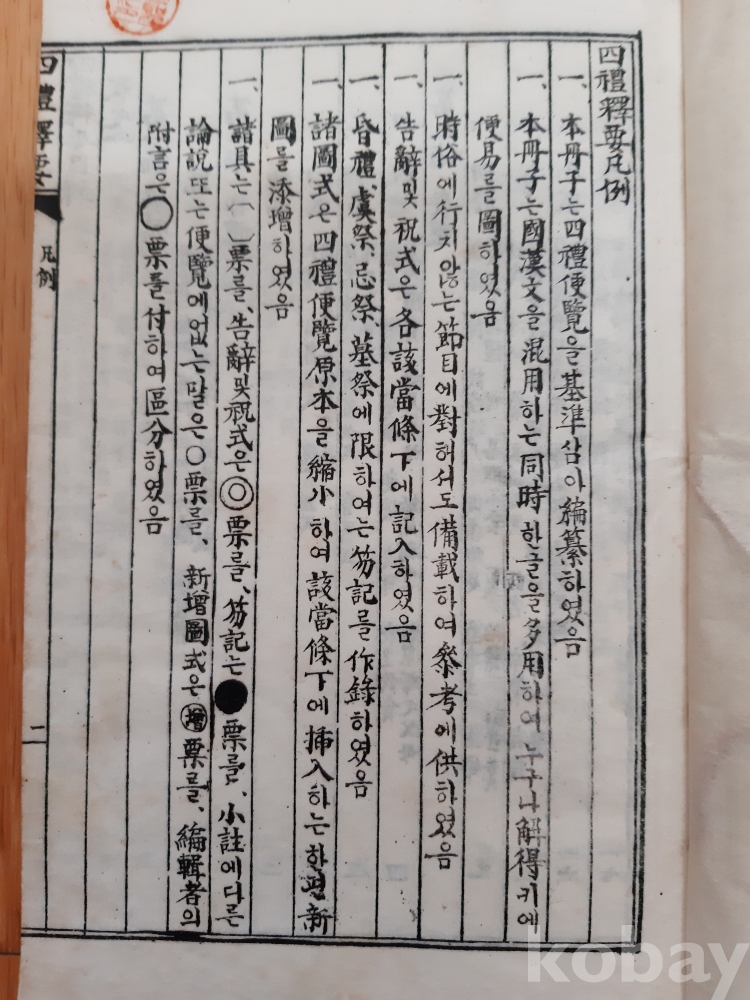 四禮釋要凡例
一、本冊子는 四禮便覽을 基準삼아 編纂하였음
一、本冊子는 國漢文을 混用하는 同時 한글을 多用하여 누구나 解得키에
便易를 圖하였음
一、時俗에 行치 않는 節目에 對해서도 備載하여 參考에 供하였음
一、告辭및 祝式은 各該當條下에 記入하였음
一、昏禮、虞祭、忌祭、墓祭에 限하여는 笏記를 作錄하였음
一、諸圖式은 四禮便覽原本을 縮小하여 該當條下에 揷入하는 한편 新
圖를 添增하였음
一、諸具는 ( )票를、告辭및 祝式은 ◎票를、笏記는 ●票를、小註에 다른
論說 또는 便覽에 없는 말은 ○票를、新增圖式은 增票를、編輯者의
附言은 ○票를 付하여 區分하였음
四禮釋要
凡例
二
kobay